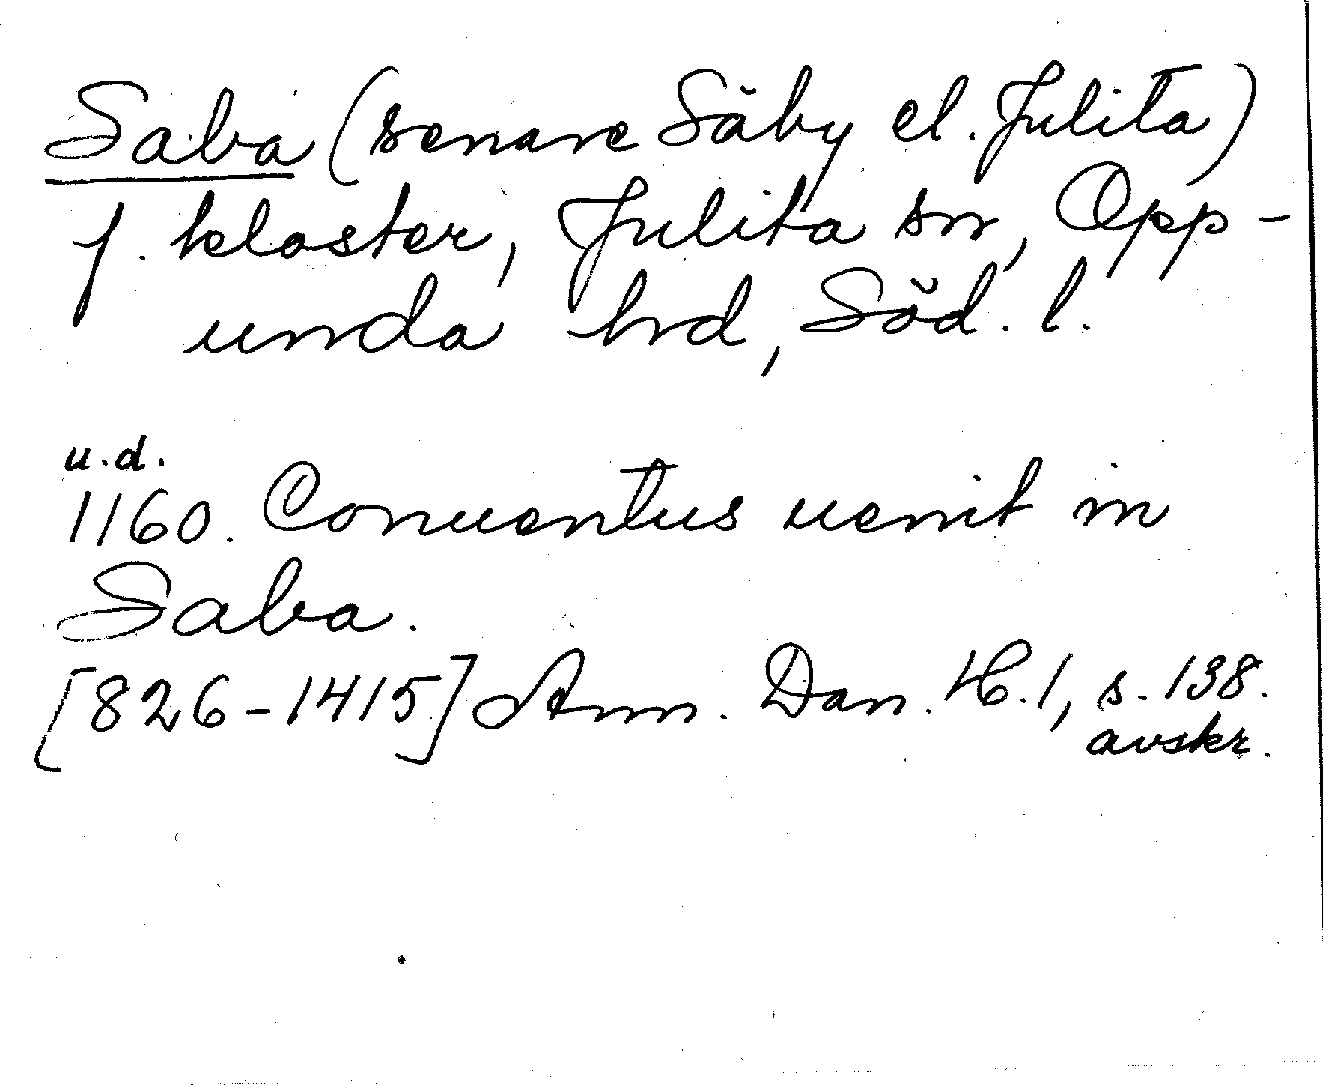 Saba (senare Säby el. Julita)
f. kloster, Julita sn, Opp-
unda hrd, Söd. l.
u.d.
1160. Conuentus uenit in
Saba.
[826-1415] Ann. Dan. H. 1, s. 138.
avskr.